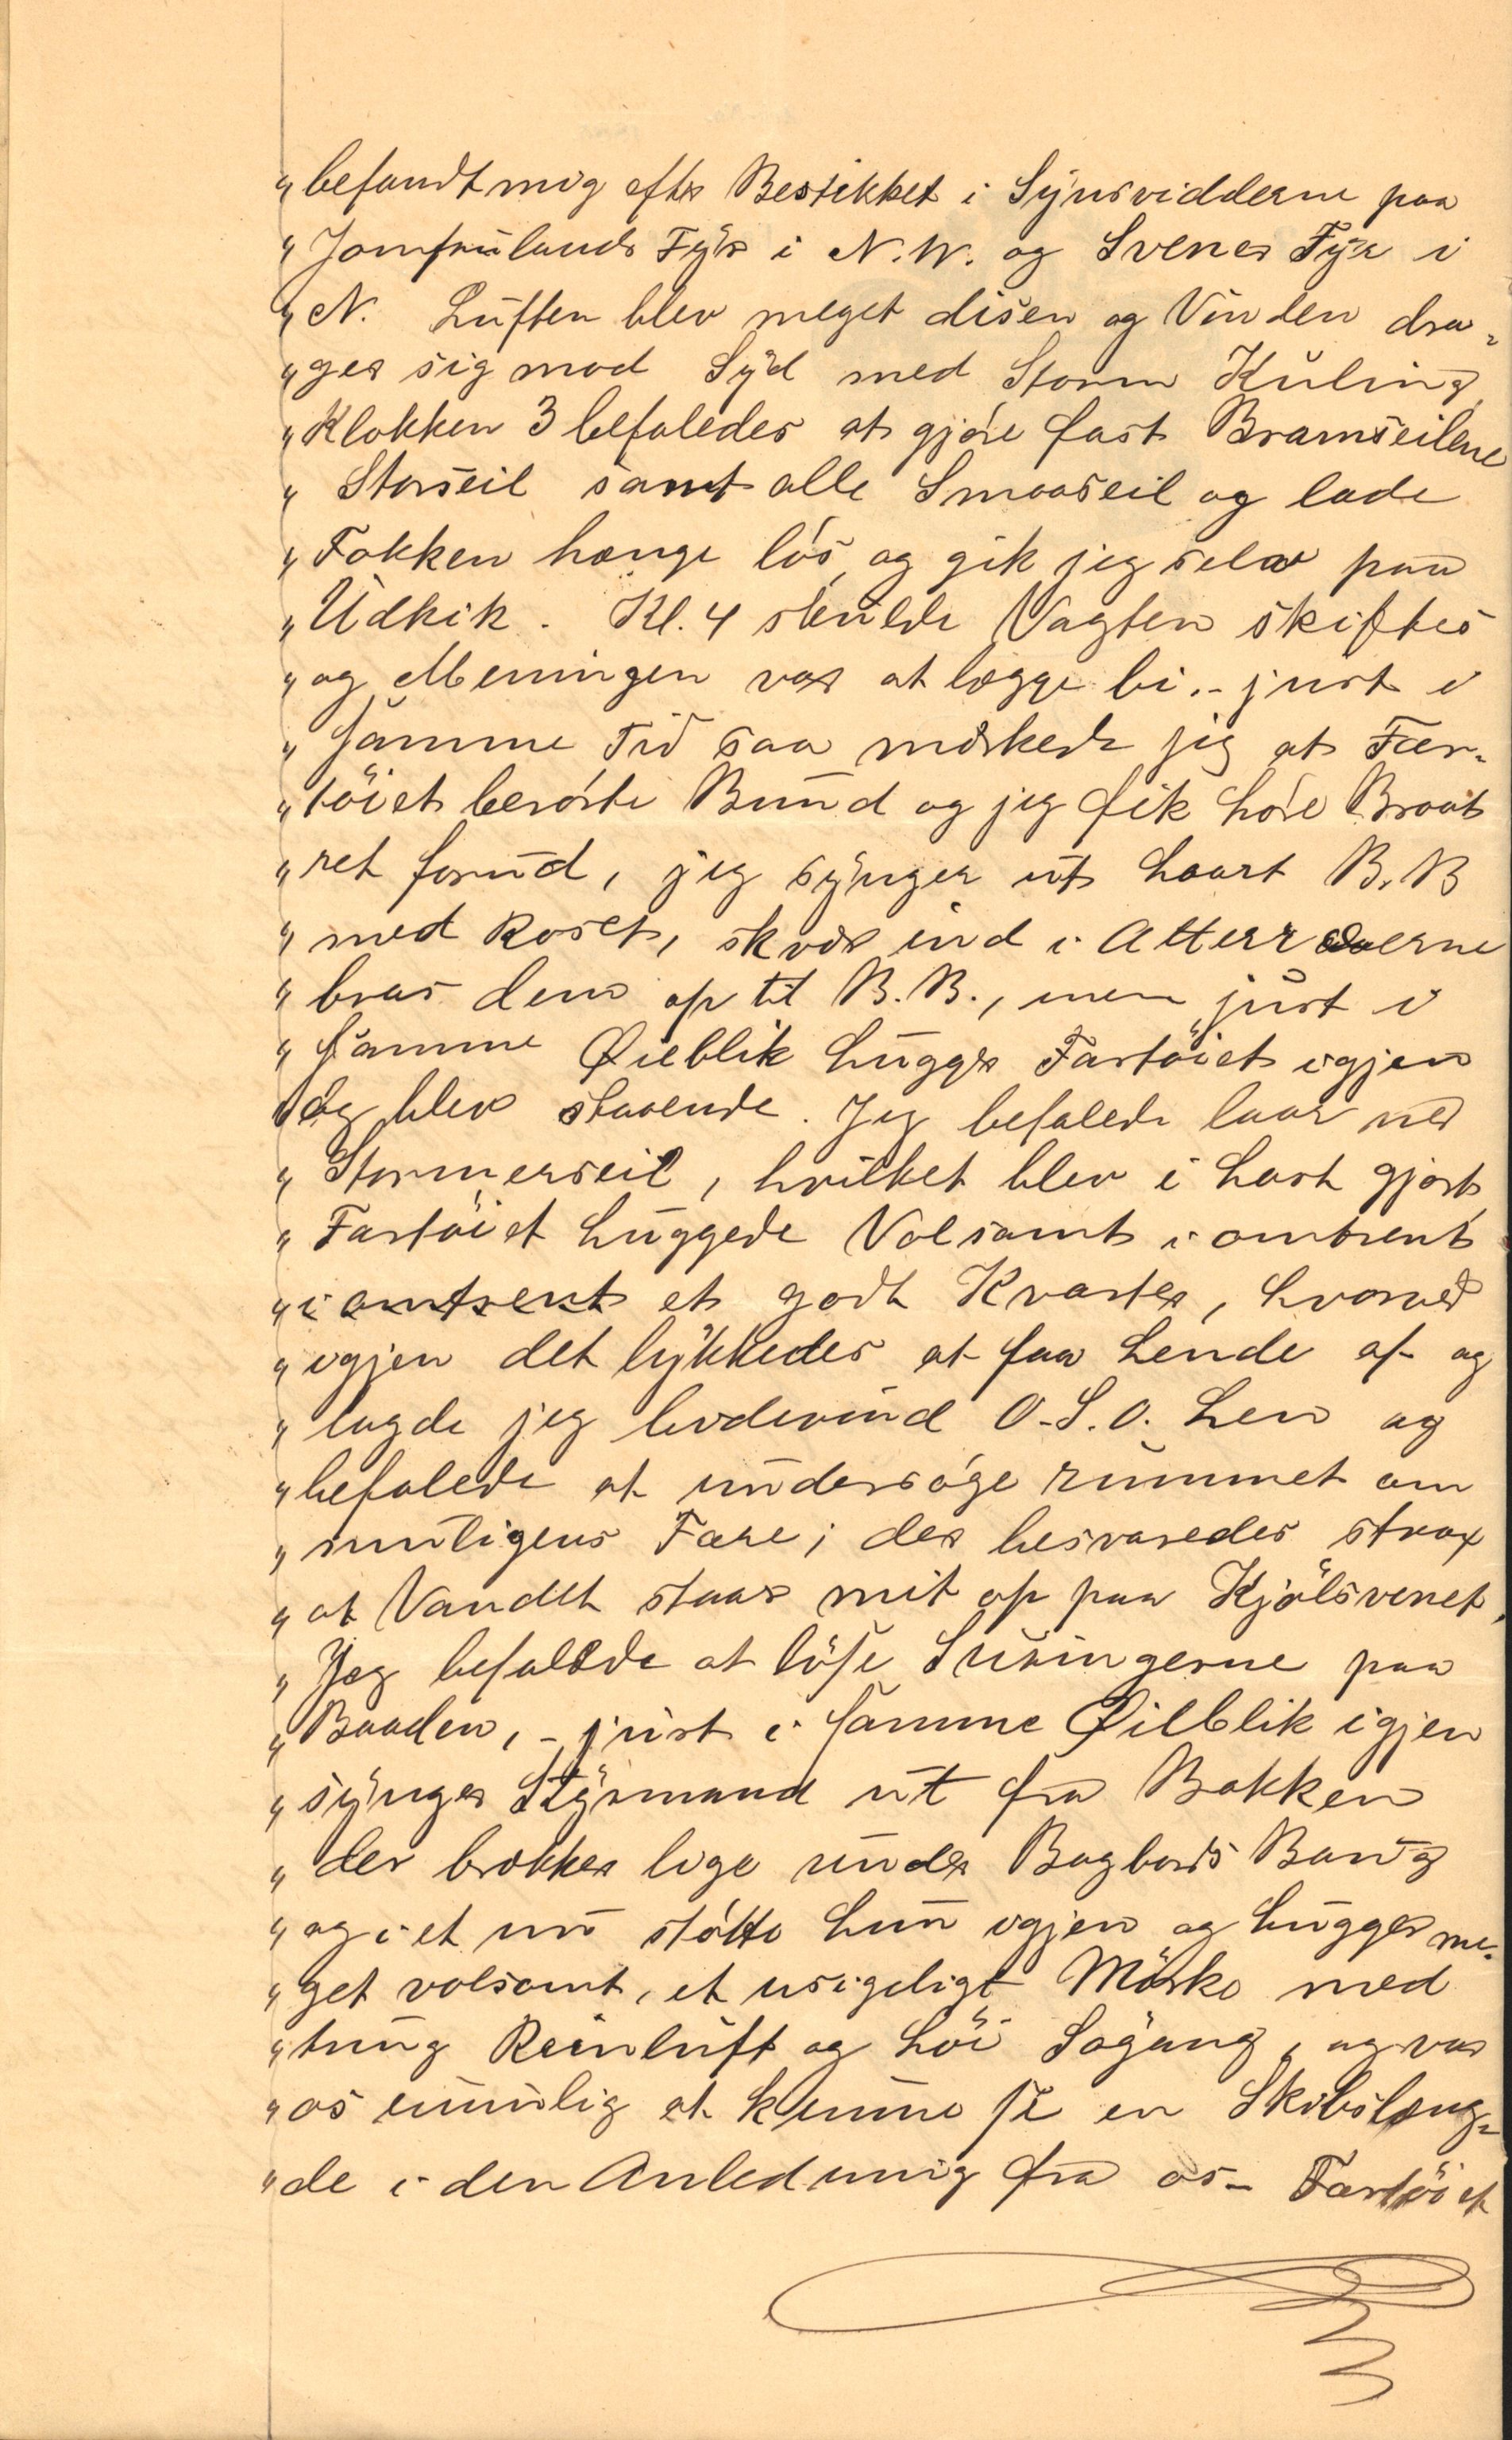 „befandt mig efter Bestikket i Synsvidderne paa
„Jomfrulands Fyr i N.W. og Svenes Fyr i
„N. Luften blev meget disen og Vinden dra-
„ger sig mod Syd med Storm Kuling,
„Klokken 3 befaledes at gjøre fast Bramseilene
„Storseil samt alle Smaaseil og lade
„Fokken hænge løs, og gik jeg selv paa
„Udkik. Kl. 4 skulde Vagten skiftes
„og Meningen var at lægge bi. - just i
„samme Tid saa mærkede jeg at Far-
„töiet berørte Bund og jeg fik høre Braat
„ret forud, jeg synger ut haart B.B
„med Roret, skvær ind i Atterræerne
„bras dem op til B.B., men just i
„samme Øieblik hugger Fartöiet igjen
„og blev staaende. Jeg befalede laar ned
„Stormerseil, hvilket blev i hast gjort,
„Fartöiet huggede Volsomt i omtrent
„i omtrent et godt Kvarter, hvorved
„igjen det lykkedes at faa hende af og
„lagde jeg bidevind O.S.O. hen og
„befalede at undersøge rummet om
„muligens Fare; der besvaredes strax
„at Vandet staar mit op paa Kjölsvinet,
„Jeg befalede at löse Suringerne paa
„Baaden, - just i samme Øieblik igjen
„synger Styrmand ut fra Bakken
„der brækker lige under Bagbords Baug
„og i et nu støtte hun igjen og hugger me-
„get volsomt, et usigeligt Mörke med
„tung Reinluft og höi Sögang, og var
„os umulig at kunne se en Skibslæng-
„de i den Anledning fra os - Fartöiet